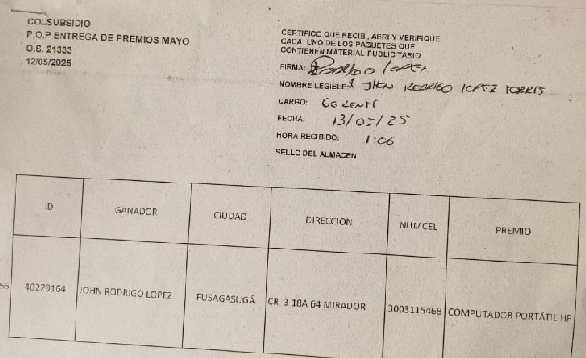 COLSUBSIDIO
P.O.P ENTREGA DE PREMIOS MAYO
O.S. 21333
12/05/2025
CERTIFICO QUE RECIBI, ABRI Y VERIFIQUE
CADA UNO DE LOS PAQUETES QUE
CONTIENEN MATERIAL PUBLICITARIO
FIRMA:
NOMBRE LEGIBLE: JHON RODRIGO LOPEZ TORRES
CARGO:
FECHA: 13/05/25
HORA RECIBIDO: 1:06
SELLO DEL ALMACEN
ID GANADOR CIUDAD DIRECCION NUM CEL PREMIO
40279164 JOHN RODRIGO LOPEZ FUSAGASUGÁ CR 3 18A 64 MIRADOR 3003115468 COMPUTADOR PORTÁTIL HP